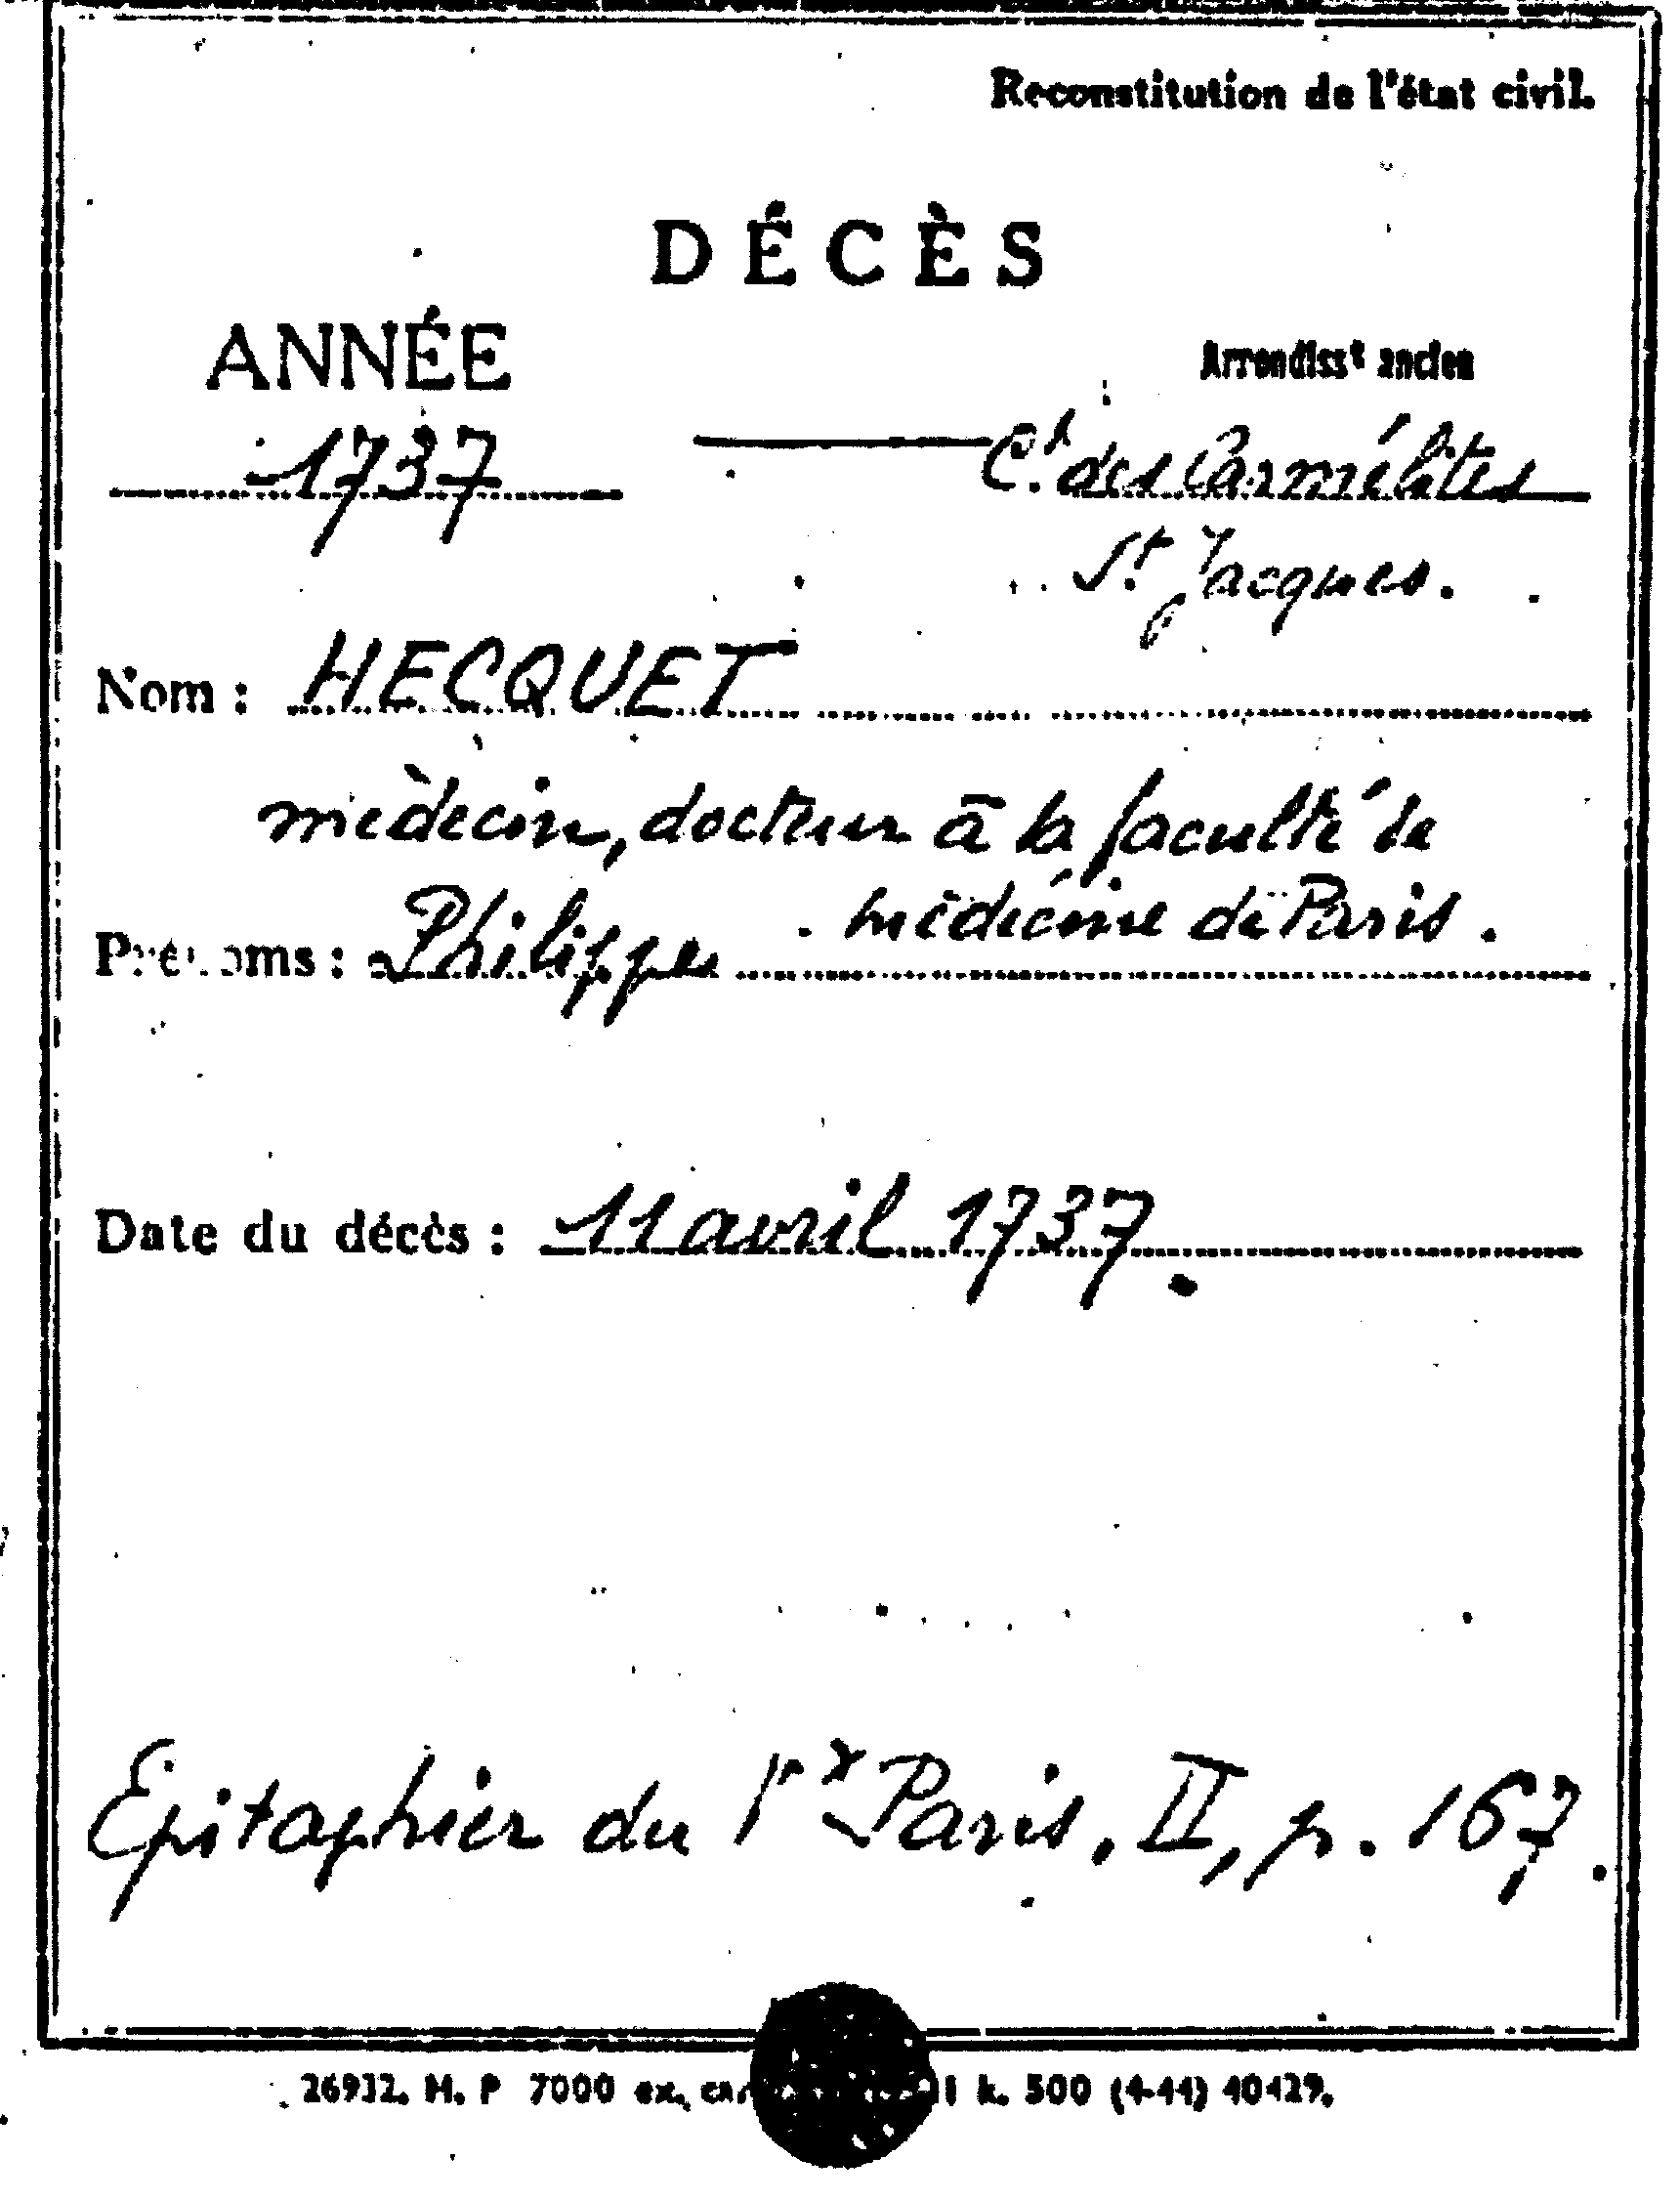 Reconstitution de l'état civil.
DÉCÈS
ANNÉE
Arrondisst ancien
1737
Ct des Carmélites
St Jacques.
Nom : HECQUET
médecin, docteur à la faculté de
médecine de Paris.
Prénoms : Philippe
Date du décès : 11 avril 1737.
Epitaphier du Vx Paris, II, p. 167.
26932. M. P 7000 ex. k. 500 (4-44) 40429.